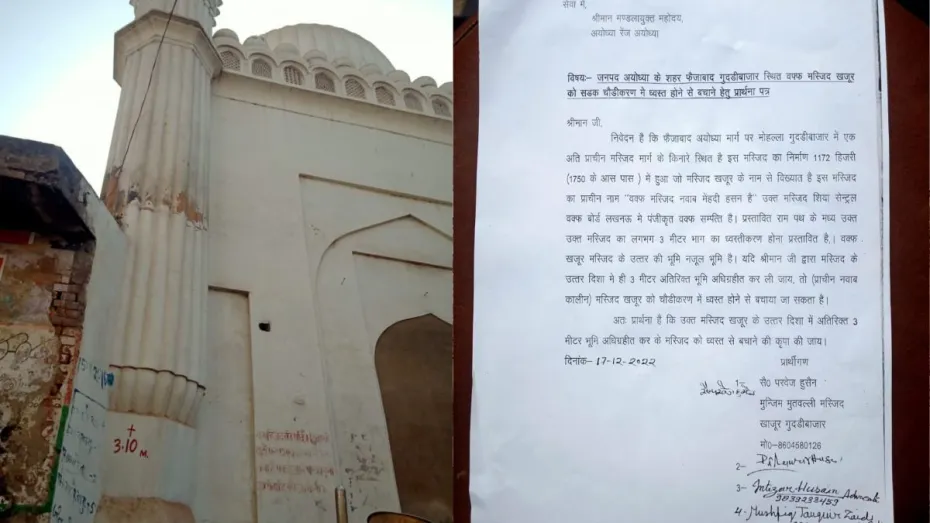 3.10 M.
सेवा में,
श्रीमान मण्डलायुक्त महोदय,
अयोध्या रेंज अयोध्या
विषयः- जनपद अयोध्या के शहर फैजाबाद गुदडीबाजार स्थित वक्फ मस्जिद खजूर
को सडक चौडीकरण मे ध्वस्त होने से बचाने हेतु प्रार्थना पत्र
श्रीमान जी,
निवेदन है कि फैजाबाद अयोध्या मार्ग पर मोहल्ला गुदडीबाजार में एक
अति प्राचीन मस्जिद मार्ग के किनारे स्थित है इस मस्जिद का निर्माण 1172 हिजरी
(1750 के आस पास ) में हुआ जो मस्जिद खजूर के नाम से विख्यात है इस मस्जिद
का प्राचीन नाम "वक्फ मस्जिद नवाब मेंहदी हसन है" उक्त मस्जिद शिया सेन्ट्रल
वक्फ बोर्ड लखनऊ मे पंजीकृत वक्फ सम्पत्ति है। प्रस्तावित राम पथ के मध्य उक्त
उक्त मस्जिद का लगभग 3 मीटर भाग का ध्वस्तीकरण होना प्रस्तावित है,। वक्फ
खजूर मस्जिद के उत्तर की भूमि नजूल भूमि है। यदि श्रीमान जी द्वारा मस्जिद के
उत्तर दिशा मे ही 3 मीटर अतिरिक्त भूमि अधिग्रहीत कर ली जाय, तो (प्राचीन नवाब
कालीन) मस्जिद खजूर को चौडीकरण में ध्वस्त होने से बचाया जा सकता है।
अतः प्रार्थना है कि उक्त मस्जिद खजूर के उत्तर दिशा में अतिरिक्त 3
मीटर भूमि अधिग्रहीत कर के मस्जिद को ध्वस्त से बचाने की कृपा की जाय।
दिनांक- 17-12-2022 प्रार्थीगण
सै0 परवेज हुसैन
मुन्जिम मुतवल्ली मस्जिद
खाजूर गुदडीबाजार
मो0-8604580126
2-
3- Intizar Husain Advocate
9839233459
4- Mushfiq Tauquir Zaidi